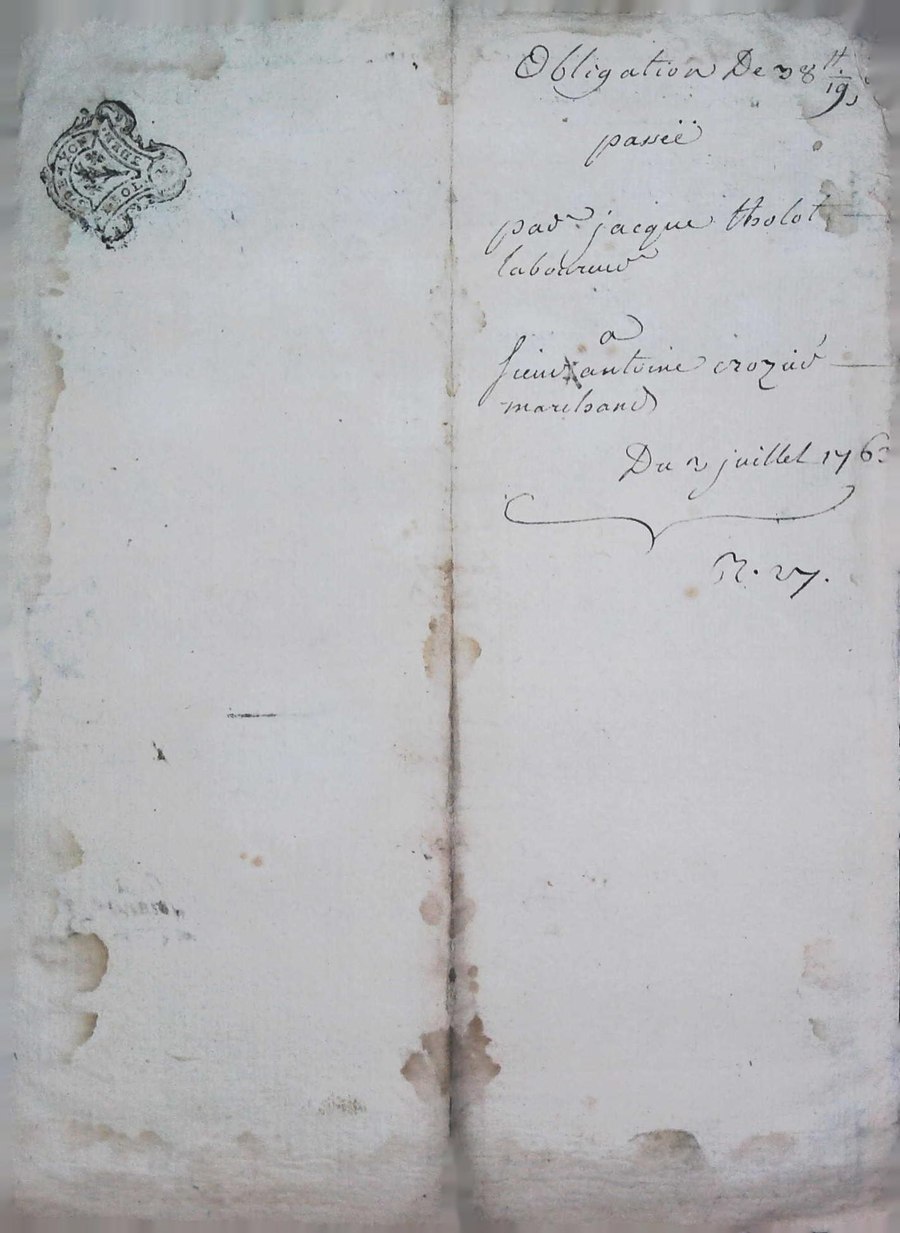 Obligation De 38 ₶ 19 s
passeë
par jacque tholot
laboureur
a
sieur antoine crozier
marchand
Du 3 juillet 1763
N. 27.